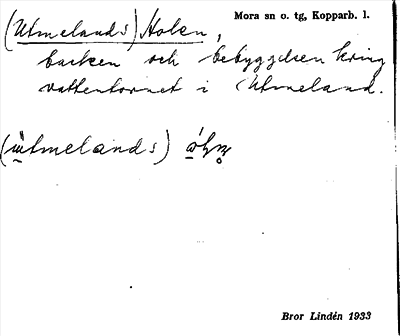 Mora sn o. tg, Kopparb. l.
(Utmelands) Holen,
backen och bebyggelsen kring
vattentornet i Utmeland.
Bror Lindén 1933